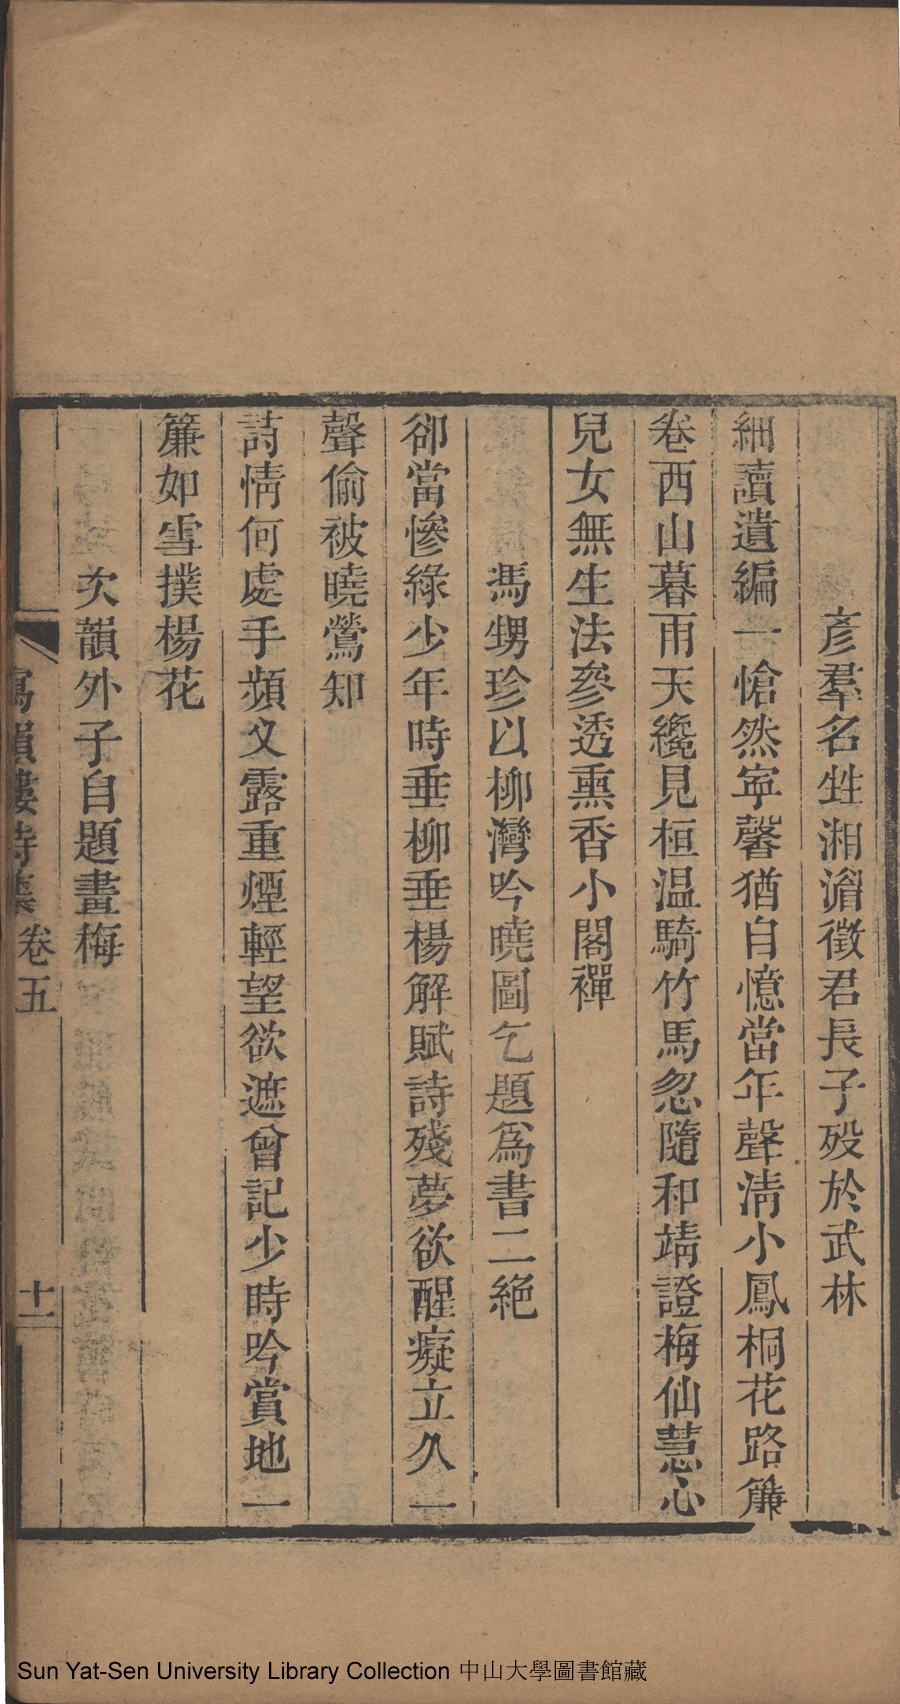 彥羣名甡湘湄徵君長子殁於武林
細讀遺編一愴然寧馨猶自憶當年聲淸小鳳桐花路簾
卷西山暮雨天纔見桓温騎竹馬忽隨和靖證梅仙慧心
兒女無生法參透熏香小閣禪
馮甥珍以柳灣吟曉圖乞題爲書二絶
卻當慘綠少年時垂柳垂楊解賦詩殘夢欲醒癡立久一
聲偷被曉鶯知
詩情何處手頻叉露重煙輕望欲遮曾記少時吟賞地一
簾如雪撲楊花
次韻外子自題畫梅
寫韻樓詩集 卷五 十一
Sun Yat-Sen University Library Collection 中山大學圖書館藏